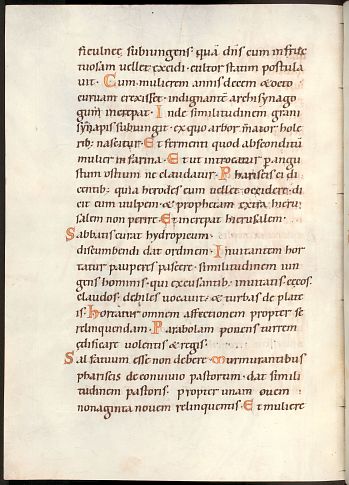 ficulnee subiungens· quā dn̄s cum infruc
tuosam uellet excidi· cultor statim postula
uit· Cum mulierem annis decem & octo
curuam erexisset· indignantē archisynago
gum increpat· Inde similitudinem grani
synapis subiungit· ex quo arbor maior hole
rib; nascitur· Et fermenti quod absconditū
mulier in farina· Et ut introeatur p angu
stum ostium ne claudatur· Phariseis di
centib; quia herodes eum uellet occidere· di
cit eum uulpem· & prophetam extra hieru
salem non perire· Et increpat hierusalem·
Sabbatis curat hydropicum·
discumbendi dat ordinem· Inuitantem hor
tatur pauperes pascere· similitudinem iun
gens hominis· qui excusantib; inuitatis cecos
claudos· debiles uocauit· & turbas de plate
is· Hortatur omnem affectionem propter se
relinquendam· Parabolam ponens turrem
edificare uolentis & regis·
Sal fatuum esse non debere· Murmurantibus
phariseis de conuiuio pastorum· dat simili
tudinem pastoris· propter unam ouem
nonaginta nouem relinquentis· Et muliere